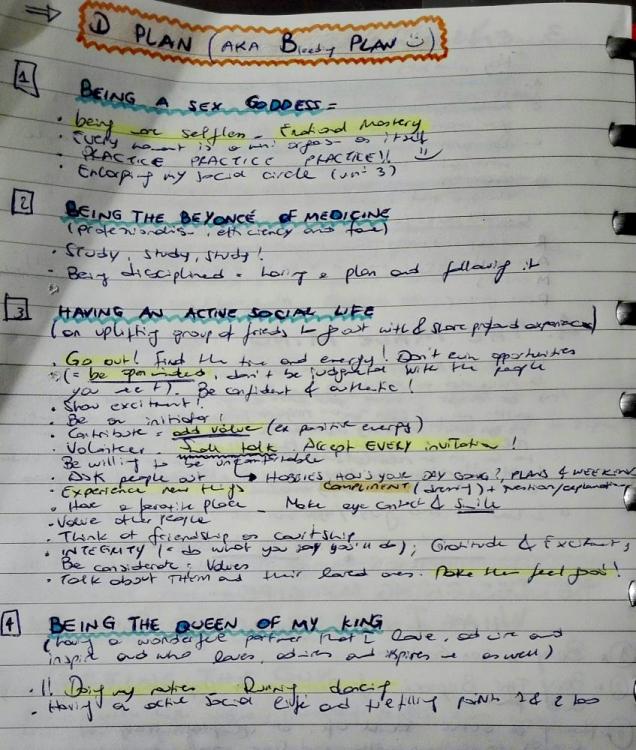 ⇒ D PLAN (AKA Bloody PLAN ☺)
1 BEING A SEX GODDESS =
• being selfless - Emotional Mastery
• Every moment is a mini orgasm itself
• PRACTICE PRACTICE PRACTICE!!
• Enlarging my social circle (un: 3)
2 BEING THE BEYONCÉ OF MEDICINE
(professionalism, efficiency and fame)
• Study, study, study!
• Being disciplined = having a plan and following it
3 HAVING AN ACTIVE SOCIAL LIFE
(an uplifting group of friends to go out with & share profound experiences)
• Go out! Find the time and energy! Don't opportunities
(= be open minded, don't be judgmental with the people
you meet). Be confident & authentic!
• Show excitment!
• Be an initiator!
• Contribute = add value (ex positive energy)
• Volunteer. Small talk. Accept EVERY invitation!
Be willing to be uncomfortable
• Ask people out → HOBBIES, HOW'S YOUR DAY GOING?, PLANS 4 WEEKEND
• Experience new things COMPLIMENT + question/explanation
• Have a favorite place - Make eye contact & Smile
• Value other people
• Think of friendship as courtship
• INTEGRITY (= do what you say you'll do); Gratitude & Excitment;
Be considerate = Values
• Talk about THEM and their loved ones. Make them feel good!
4 BEING THE QUEEN OF MY KING
(having a wonderful partner that I love, admire and
inspire and who loves, admires and inspires me as well)
• !! Doing my routines Running dancing
• Having an active social life and points 1 & 2 too